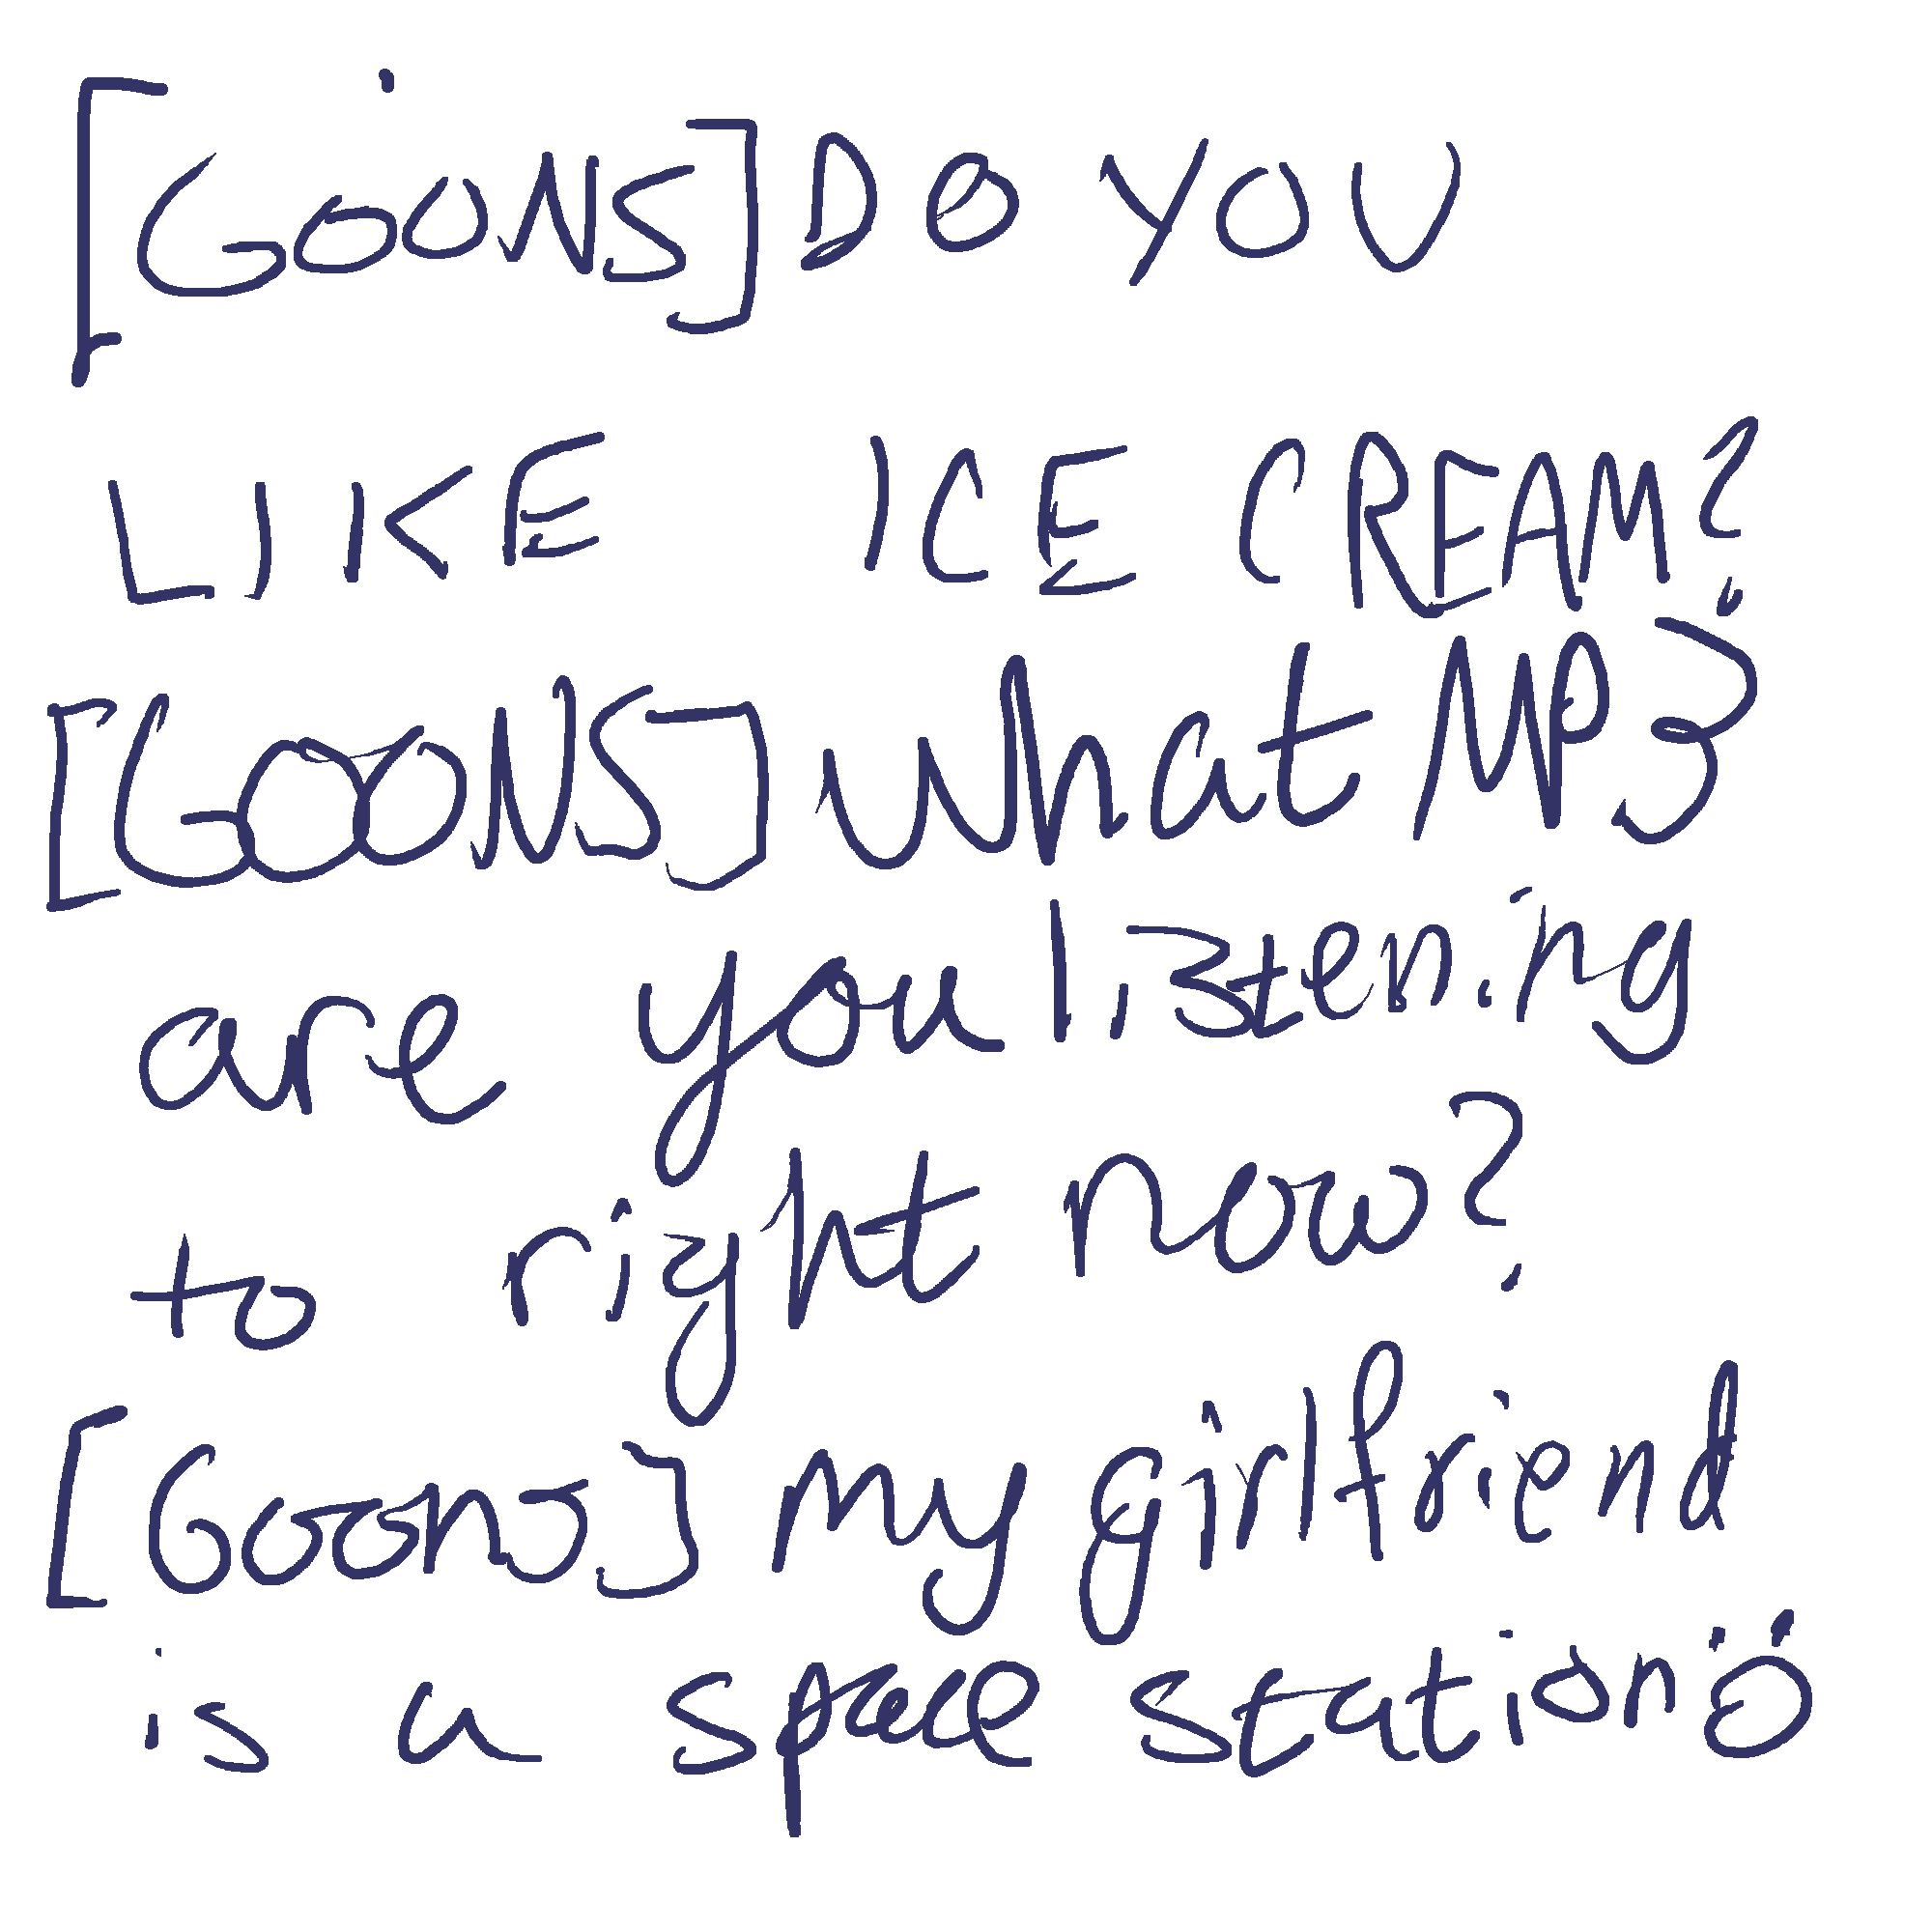 [GOONS] DO YOU
LIKE ICE CREAM?
[GOONS] What MP3
are you listening
to right now?
[Goons] My girlfriend
is a space station ö